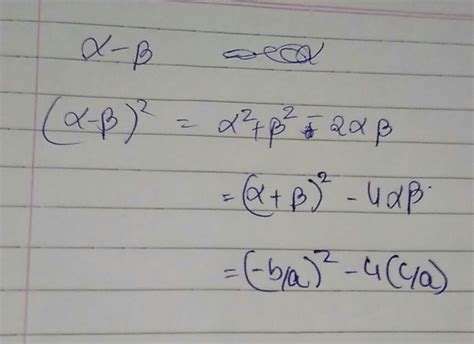 α-β
(α-β)² = α²+β²-2αβ
=(α+β)²-4αβ
=(-b/a)²-4(c/a)